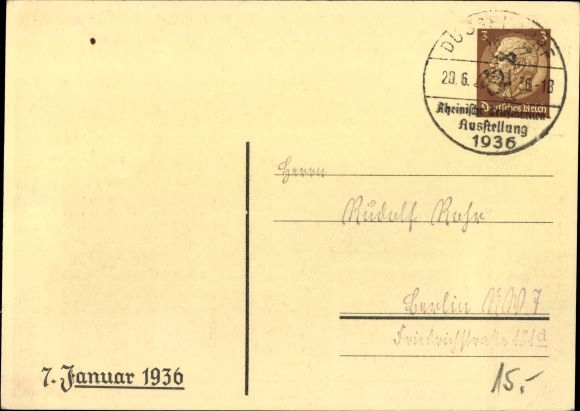 DÜSSELDORF
3 3
20.6. 36.-18
Deutsches Reich
Rheinische Briefmarken
Ausstellung
1936
Herrn
Rudolf Rohr
Berlin NW 7
Friedrichstraße 131d
7. Januar 1936
15.-